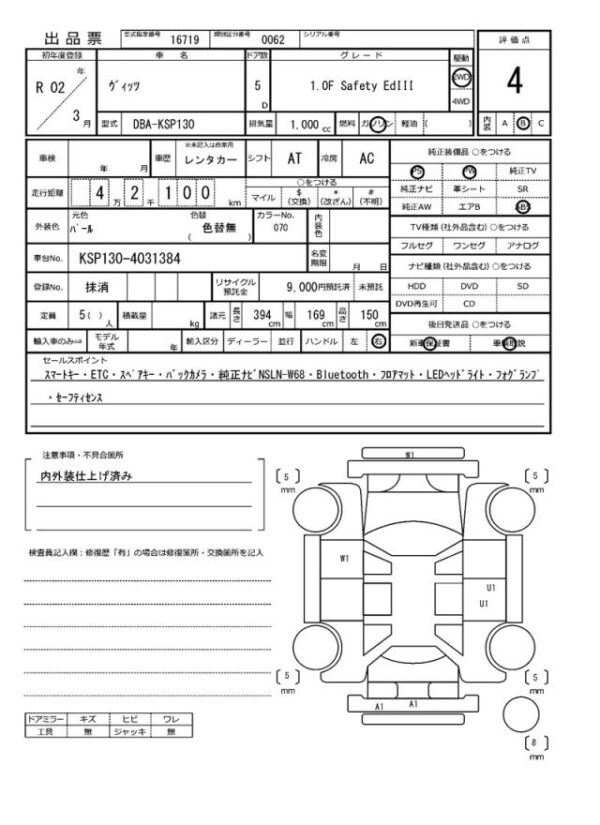 出品票 型式指定番号 16719 類別区分番号 0062 シリアル番号
評価点
初年度登録 車名 ドア数 グレード 駆動
R 02 年 ヴィッツ 5 D 1.0F Safety EdIII 2WD 4
4WD
3月 型式 DBA-KSP130 排気量 1,000 cc 燃料 ガソリン 軽油 ( ) 内装 A B C
車検 年 月 車歴 ※未記入は自家用 レンタカー シフト AT 冷房 AC
純正装備品 ○をつける
PS PW 純正TV
走行距離 4万2千100km ○をつける
マイル $(交換) *(改ざん) #(不明)
純正ナビ 革シート SR
純正AW エアB ABS
外装色 元色 パール 色替 ( 色替無 ) カラーNo. 070 内装色
TV種類(社外品含む)○をつける
フルセグ ワンセグ アナログ
車台No. KSP130-4031384 名変期限 月 日
ナビ種類(社外品含む)○をつける
登録No. 抹消 リサイクル預託金 9,000円預託済 未預託
HDD DVD SD
DVD再生可 CD
定員 5( )人 積載量 kg 諸元 長さ 394cm 幅 169cm 高さ 150cm
後日発送品 ○をつける
輸入車のみ⇒ モデル年式 年 輸入区分 ディーラー 並行 ハンドル 左 右
新車保証書 車輌取説
セールスポイント
スマートキー・ETC・スペアキー・バックカメラ・純正ナビNSLN-W68・Bluetooth・フロアマット・LEDヘッドライト・フォグランプ
・セーフティセンス
注意事項・不具合箇所
内外装仕上げ済み
検査員記入欄：修復歴「有」の場合は修復箇所・交換箇所を記入
W1
5 mm
5 mm
W1
U1
U1
5 mm
5 mm
A1 A1
8 mm
ドアミラー キズ ヒビ ワレ
工具 無 ジャッキ 無